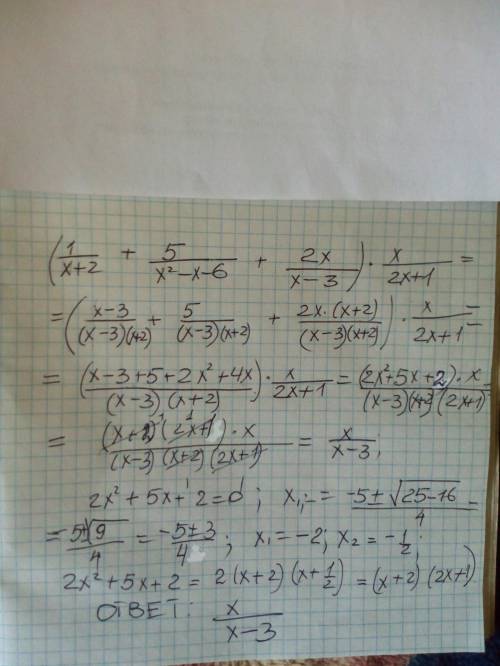 (1/(x+2) + 5/(x²-x-6) + 2x/(x-3)) · x/(2x+1) =
= ((x-3)/((x-3)(x+2)) + 5/((x-3)(x+2)) + (2x·(x+2))/((x-3)(x+2))) · x/(2x+1) =
= ((x-3+5+2x²+4x)/((x-3)(x+2))) · x/(2x+1) = ((2x²+5x+2)·x)/((x-3)(x+2)(2x+1)) =
= ((x+2)(2x+1)·x)/((x-3)(x+2)(2x+1)) = x/(x-3);
2x²+5x+2=0; x₁,₂= (-5±√(25-16))/4 =
= (-5±√9)/4 = (-5±3)/4; x₁=-2; x₂=-1/2;
2x²+5x+2 = 2(x+2)(x+1/2) = (x+2)(2x+1)
ОТВЕТ: x/(x-3)